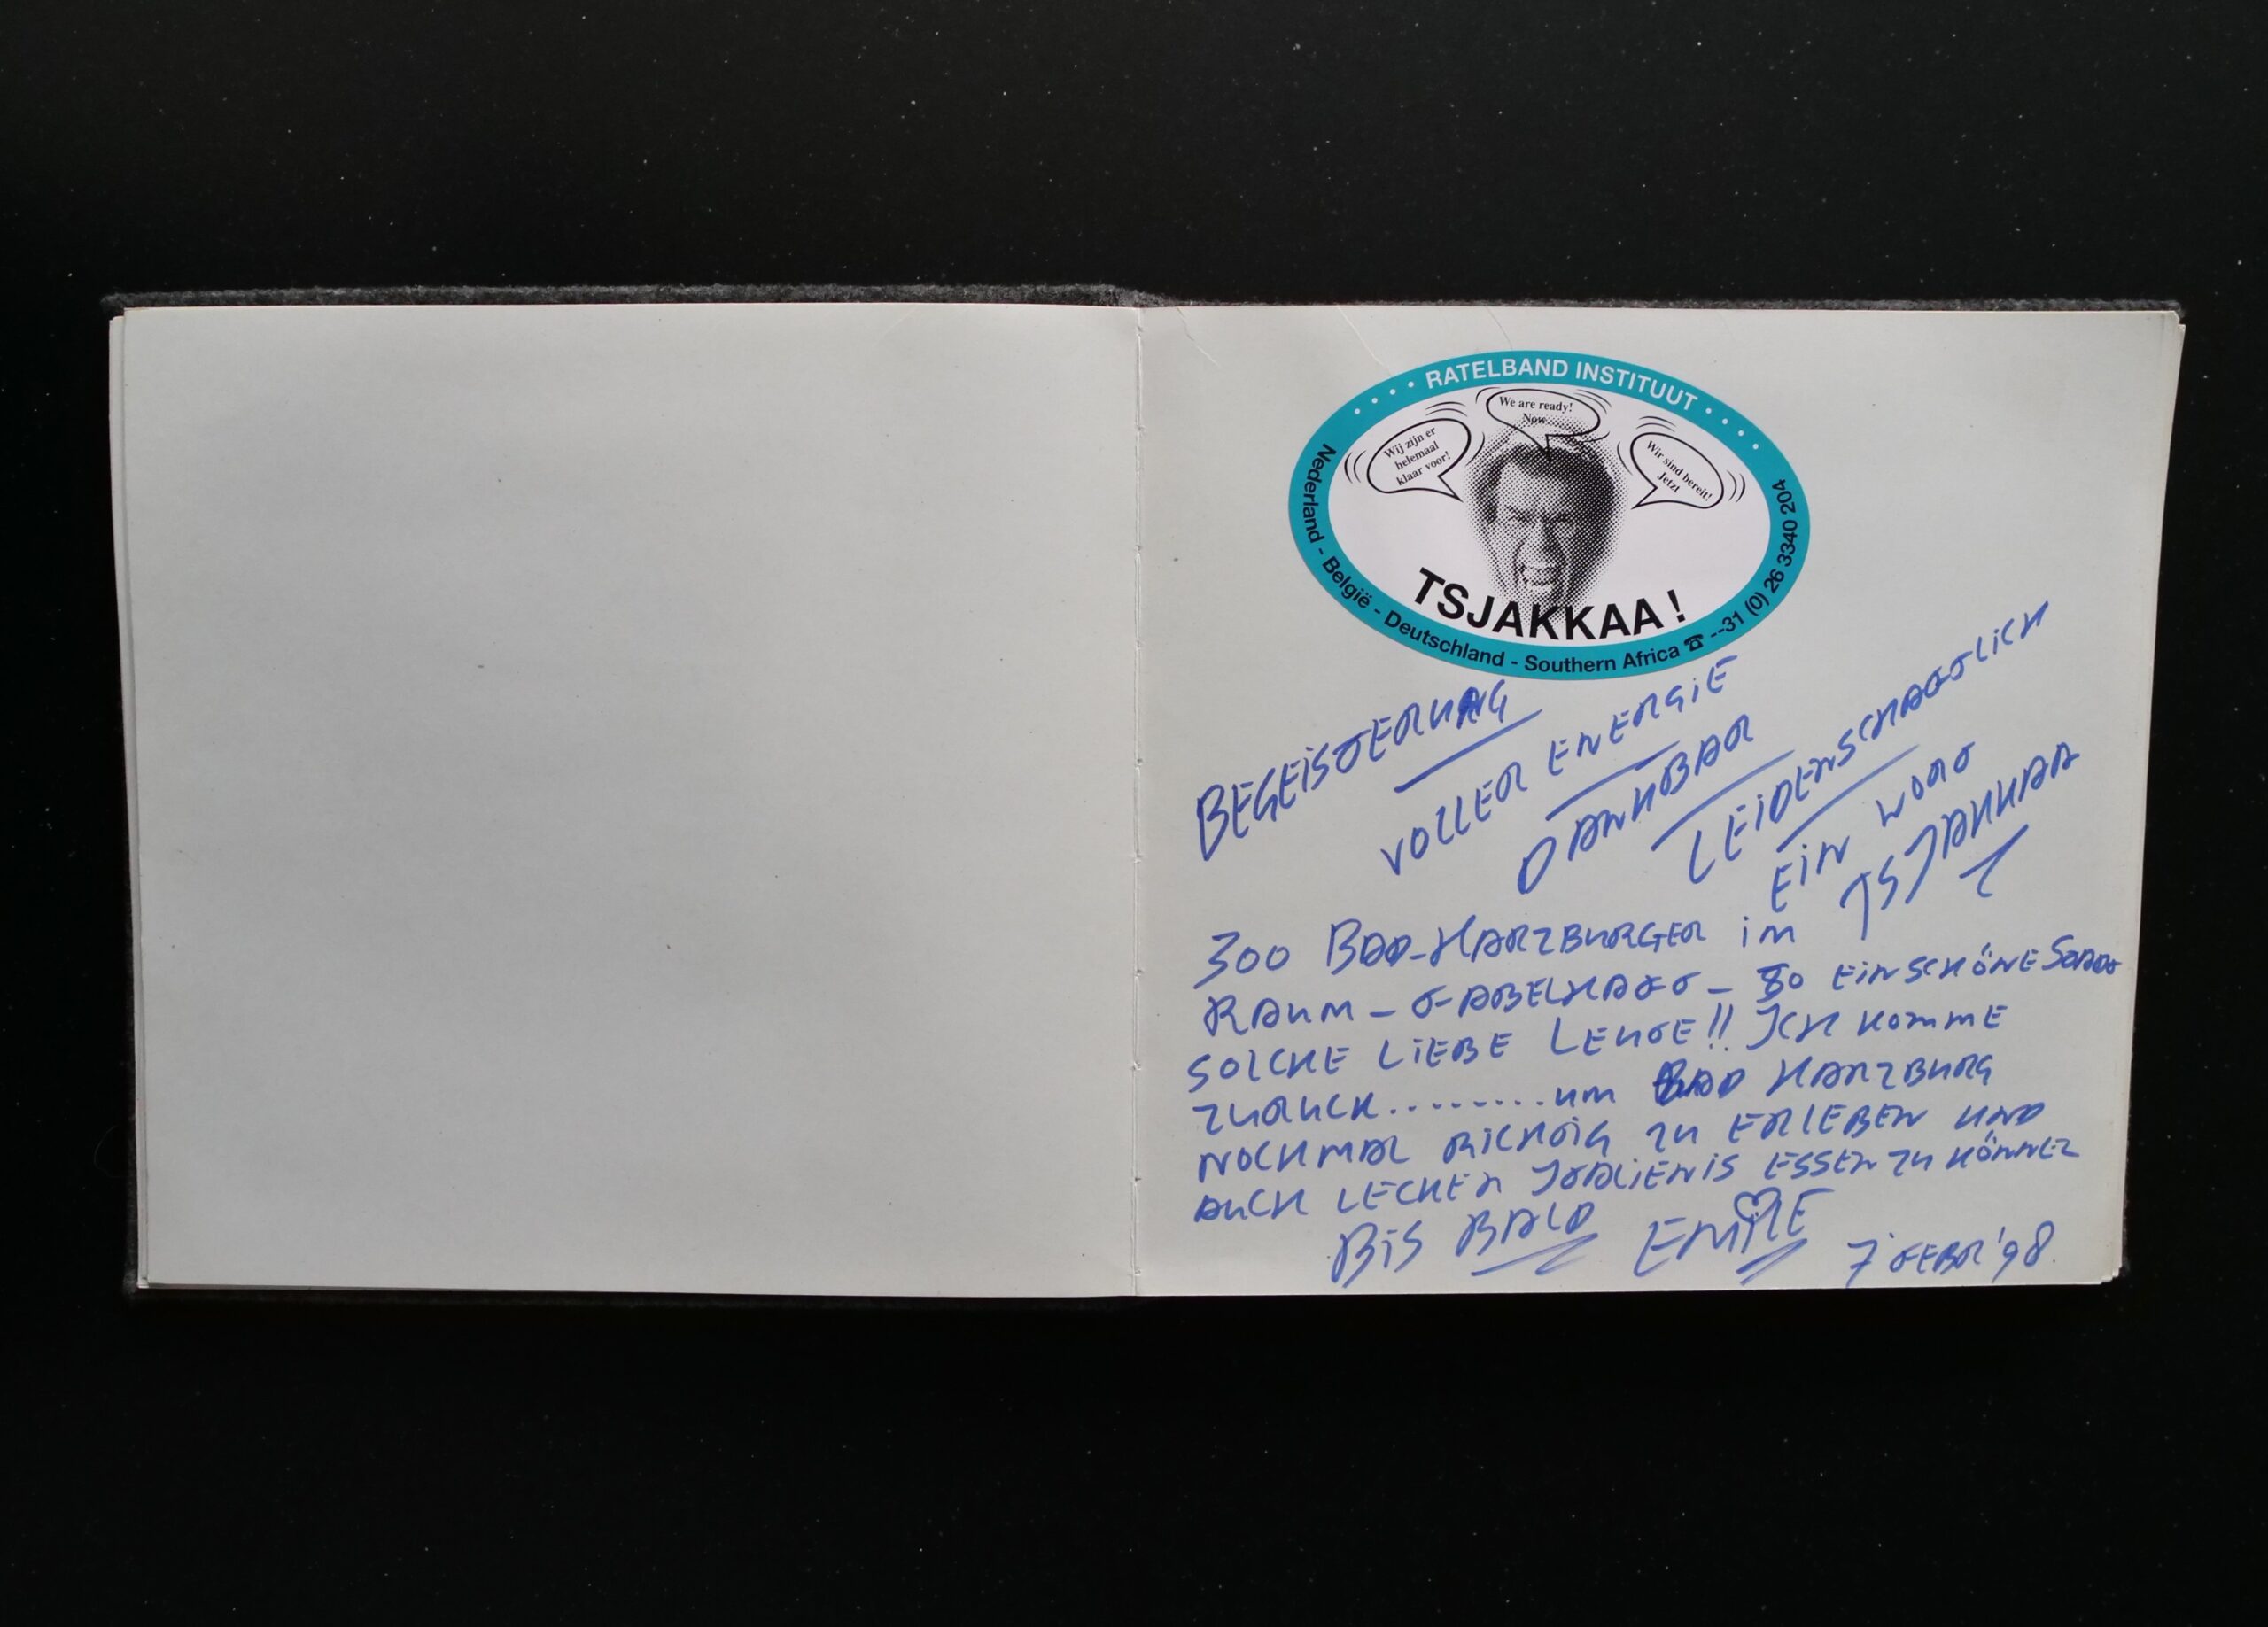 RATELBAND INSTITUUT
We are ready!
Now
Wij zijn er
helemaal
klaar voor!
Wir sind bereit!
Jetzt
TSJAKKAA!
Nederland - België - Deutschland - Southern Africa ☎ --31 (0) 26 3340 204
BEGEISTERUNG
VOLLER ENERGIE
DANKBAR
LEIDENSCHAFTLICH
EIN WORT
TSJAKKAA
300 BAD-HARZBURGER im
RAUM - FABELHAFT - SO EIN SCHÖNE STADT
SOLCHE LiEBE LEUTE!! ICH KOMME
ZURUCK......... um BAD HARZBURG
NOCHMAL RICHTIG ZU ERLEBEN UND
AUCH LECKER ITALIENIS ESSEN ZU KÖNNEN
BiS BALD EMILE 7 FEBR '98